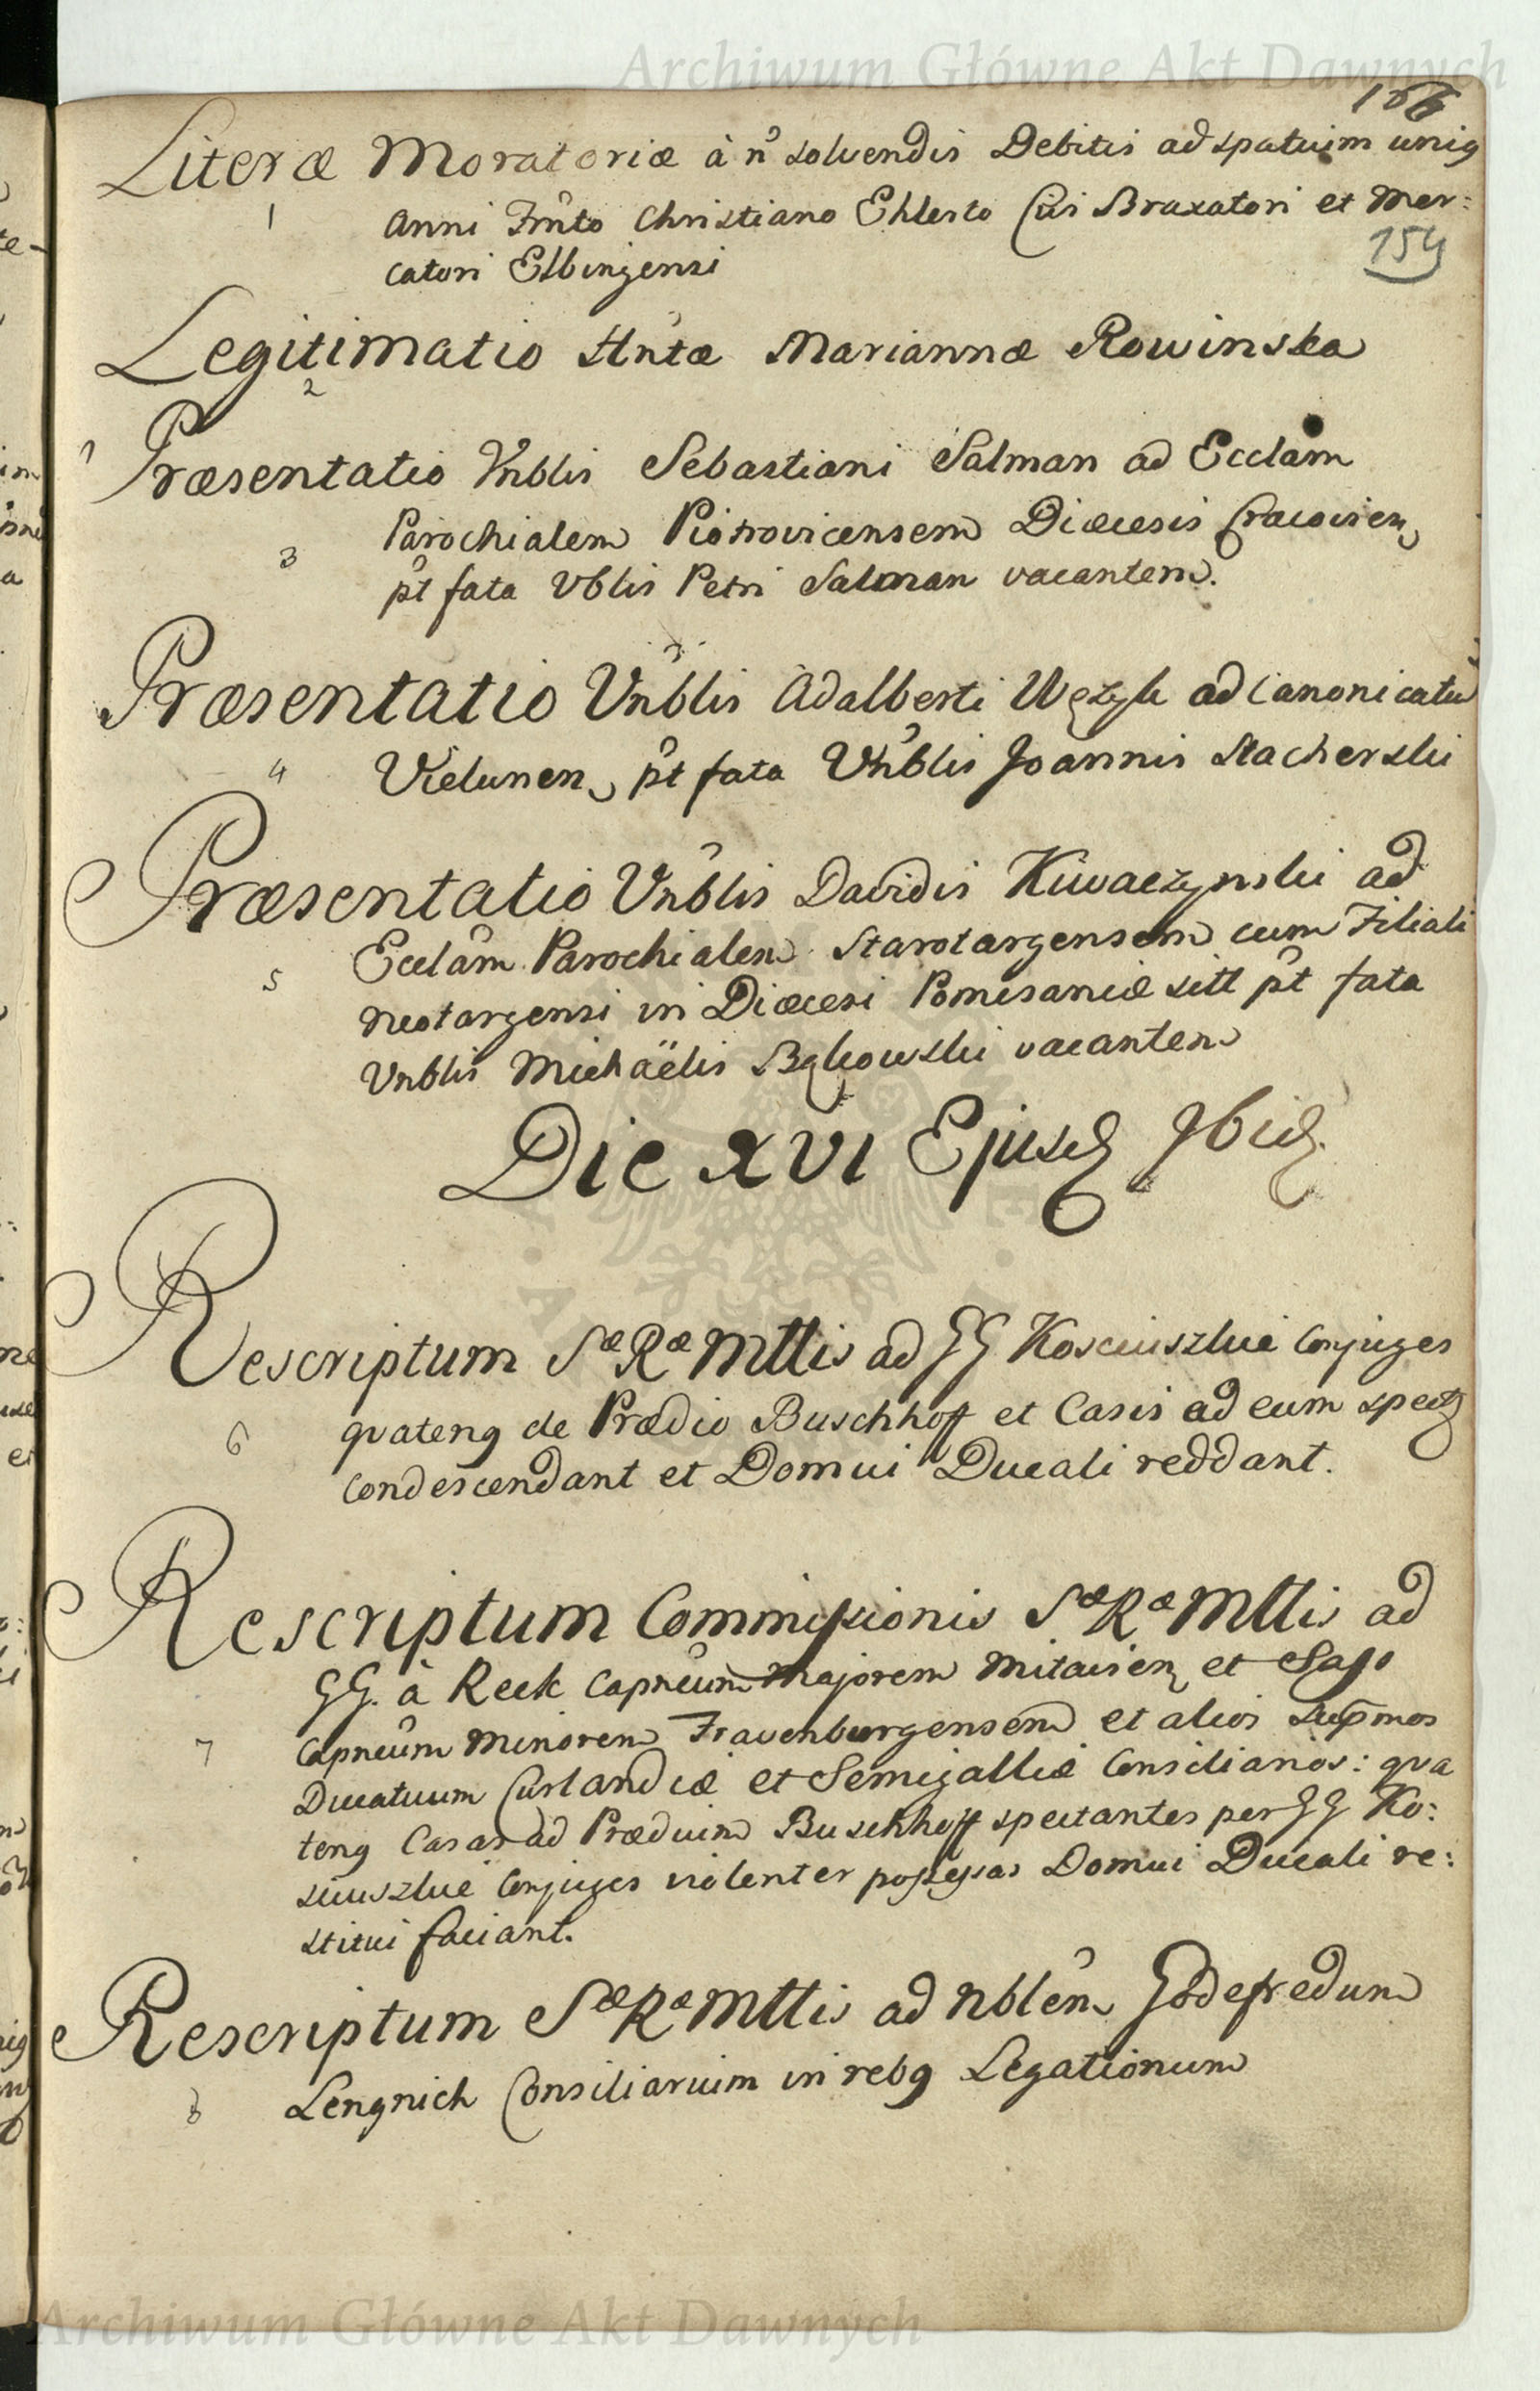 Archiwum Główne Akt Dawnych
Literæ Moratoriæ à ñ solvendis Debitis ad spatium uniq
1
Anni Fmto Christiano Ehlerto Civi Braxatori et Mer:
154
catori Elbingensi
Legitimatio Hntæ Mariannæ Rowinska
2
Præsentatio Vnblis Sebastiani Salman ad Ecclam
3 Parochialem Piotrovicensem Diæcesis Cracovien
pt fata Vblis Petri Salman vacantem.
Præsentatio Vnblis Adalberti Węzyk ad Canonicatu
4 Vielunen pt fata Vnblis Joannis Stacherski
Præsentatio Vnblis Davidis Kiwaczynski ad
5 Ecclam Parochialem Starotargensem cum Filiali
Neotargensi in Diæcesi Pomesaniæ sitt pt fata
Vnblis Michaëlis Bąkowski vacantem
Die XVI Ejusd Ibid.
Rescriptum Sæ Ræ Mttis ad GG Kosciuszkie Conjuges
6 quatenq de Prædio Buschhoff et Casis ad eum spect
condescendant et Domui Ducali reddant.
Rescriptum Commissionis Sæ Ræ Mttis ad
GG. à Reck Capneum Majorem Mitavien et Sass
7 Capneum Minorem Fravenburgensem et alios supmos
Ducatuum Curlandiæ et Semigalliæ Consiliarios: qva
tenq Casas ad Prædium Buschhoff spectantes per GG Ko:
sciuszkie Conjuges violenter possessas Domui Ducali re:
stitui faciant.
Rescriptum Sæ Ræ Mttis ad Nblem Godefredum
8 Lengnich Consiliarium in rebq Legationum
Archiwum Główne Akt Dawnych